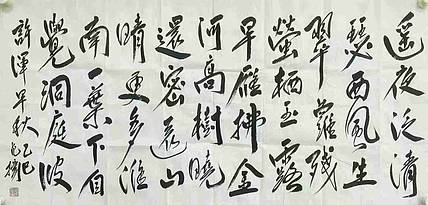 遥夜泛清
瑟西風生
翠蘿残
螢栖玉露
早雁拂金
河高樹曉
還密遠山
晴更多淮
南一葉下自
覺洞庭波
許渾早秋乙巳